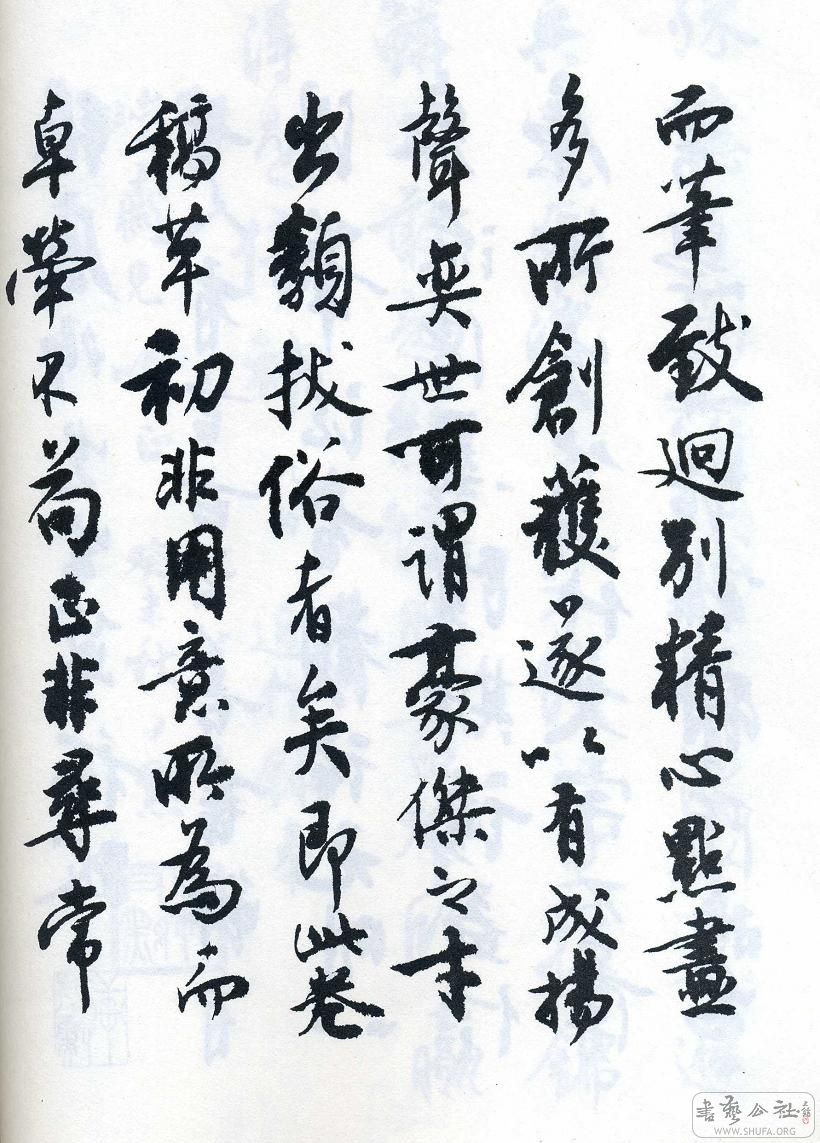 而筆致迥別精心點畫
多所創獲遂以有成揚
聲奕世可謂豪傑之士
出類拔俗者矣即此卷
稿草初非用意所為而
卓犖不苟正非尋常
書藝公社
WWW.SHUFA.ORG